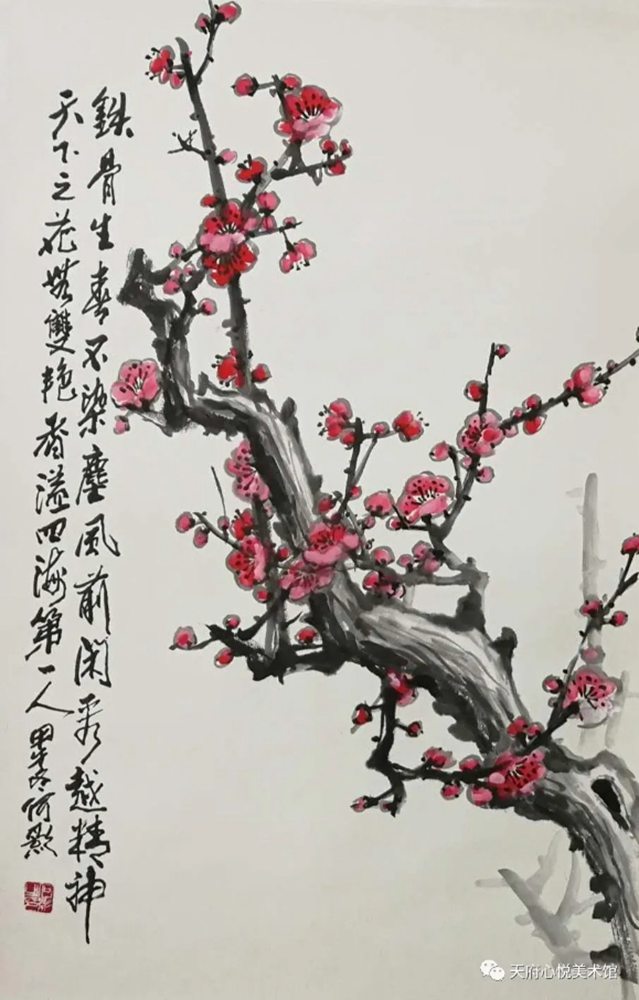 鐵骨生春不染塵風前閑秀越精神
天下之花無雙艳香溢四海第一人
甲午冬何影
天府心悦美术馆